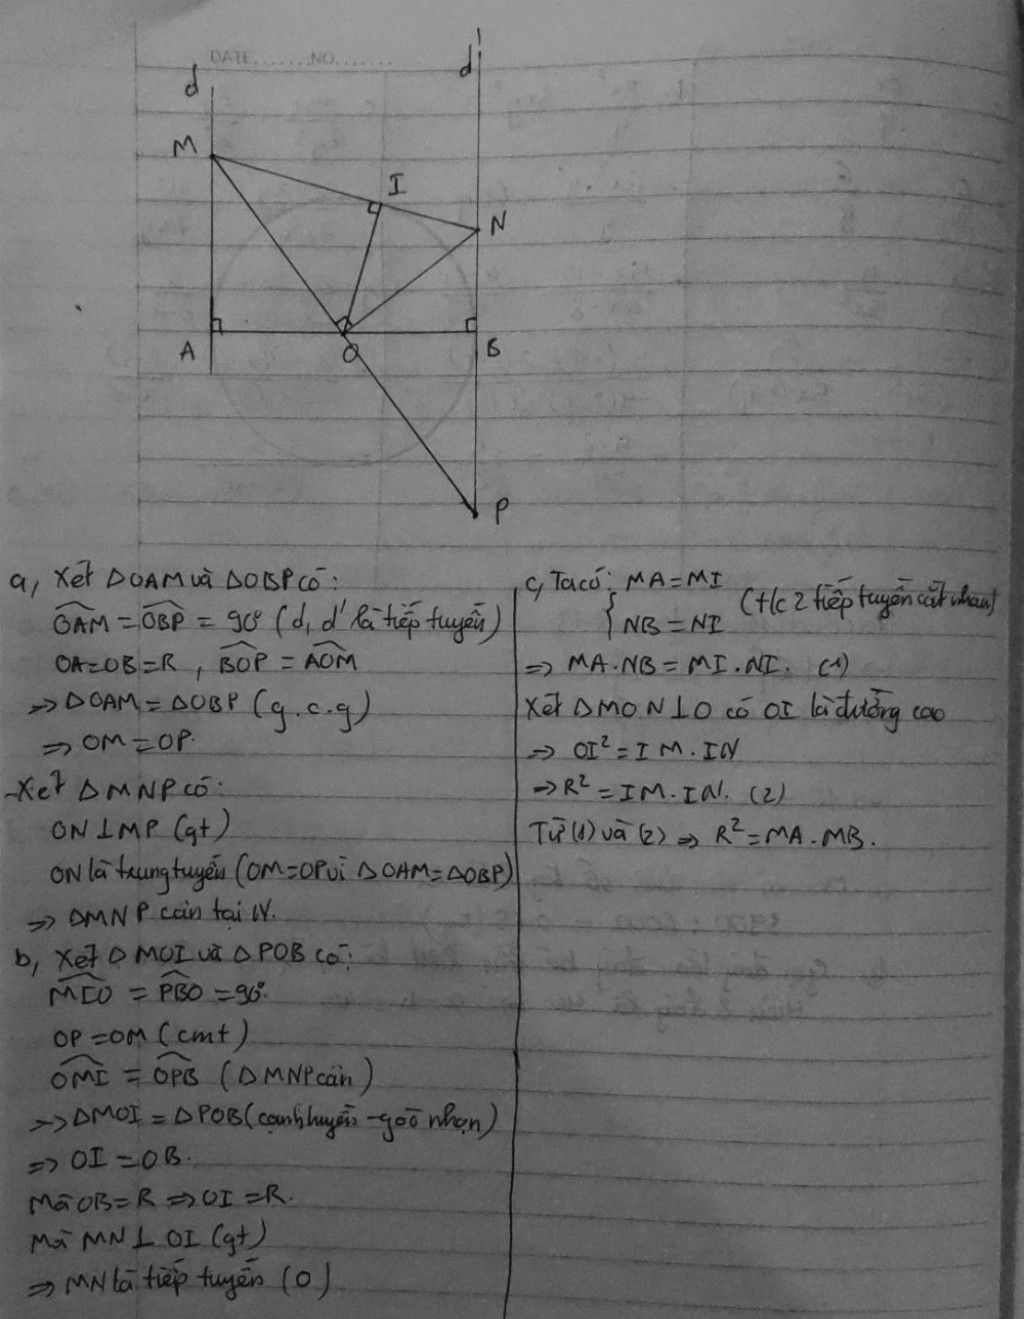 DATE.......NO.......
d
d'
M
I
N
A
O
B
P
a, Xét ΔOAM và ΔOBP có:
∠OAM = ∠OBP = 90° (d, d' là tiếp tuyến)
OA=OB=R, ∠BOP = ∠AOM
=> ΔOAM = ΔOBP (g.c.g)
=> OM=OP.
-Xét ΔMNP có:
ON⊥MP (gt)
ON là trung tuyến (OM=OP vì ΔOAM=ΔOBP)
=> ΔMNP cân tại N.
b, Xét ΔMOI và ΔPOB có:
∠MIO = ∠PBO = 90°.
OP=OM (cmt)
∠OMI = ∠OPB (ΔMNP cân)
=> ΔMOI = ΔPOB (cạnh huyền-góc nhọn)
=> OI=OB.
Mà OB=R => OI=R.
Mà MN⊥OI (gt)
=> MN là tiếp tuyến (O)
c, Ta có: { MA=MI
NB=NI (t/c 2 tiếp tuyến cắt nhau)
=> MA.NB=MI.NI. (1)
Xét ΔMON⊥O có OI là đường cao
=> OI²=IM.IN
=> R²=IM.IN. (2)
Từ (1) và (2) => R²=MA.MB.